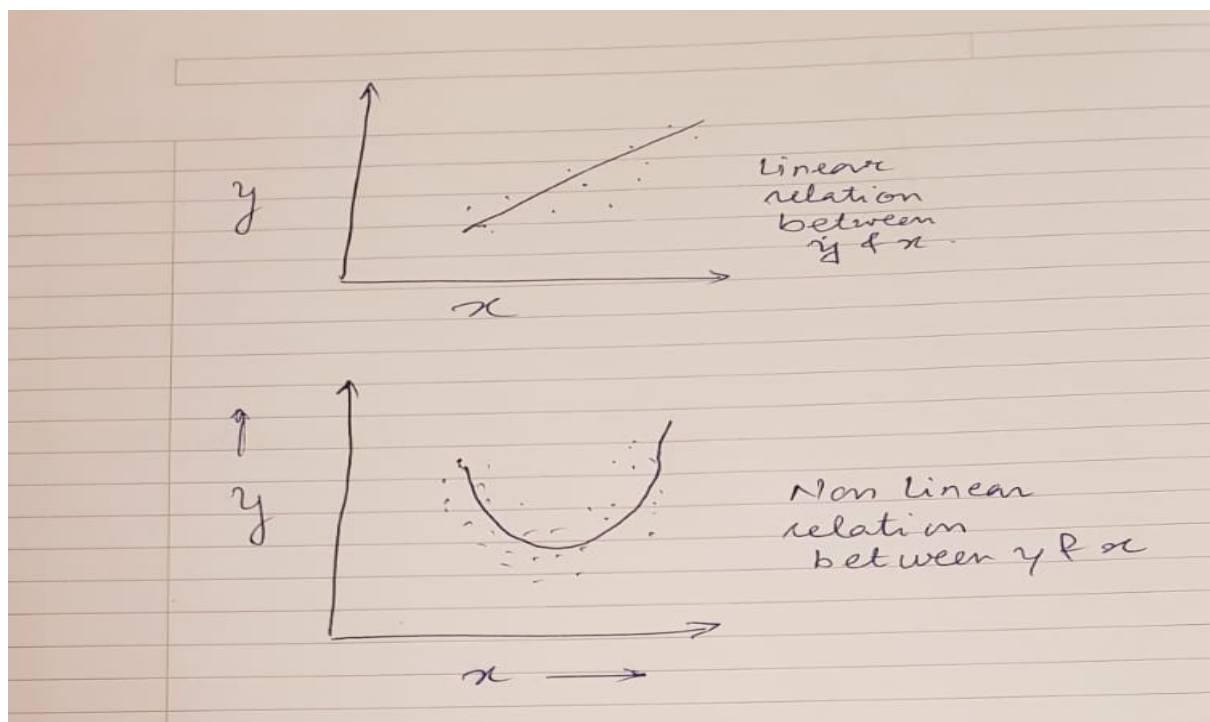 y
Linear
relation
between
y & x
x
y
Non Linear
relation
between y & x
x